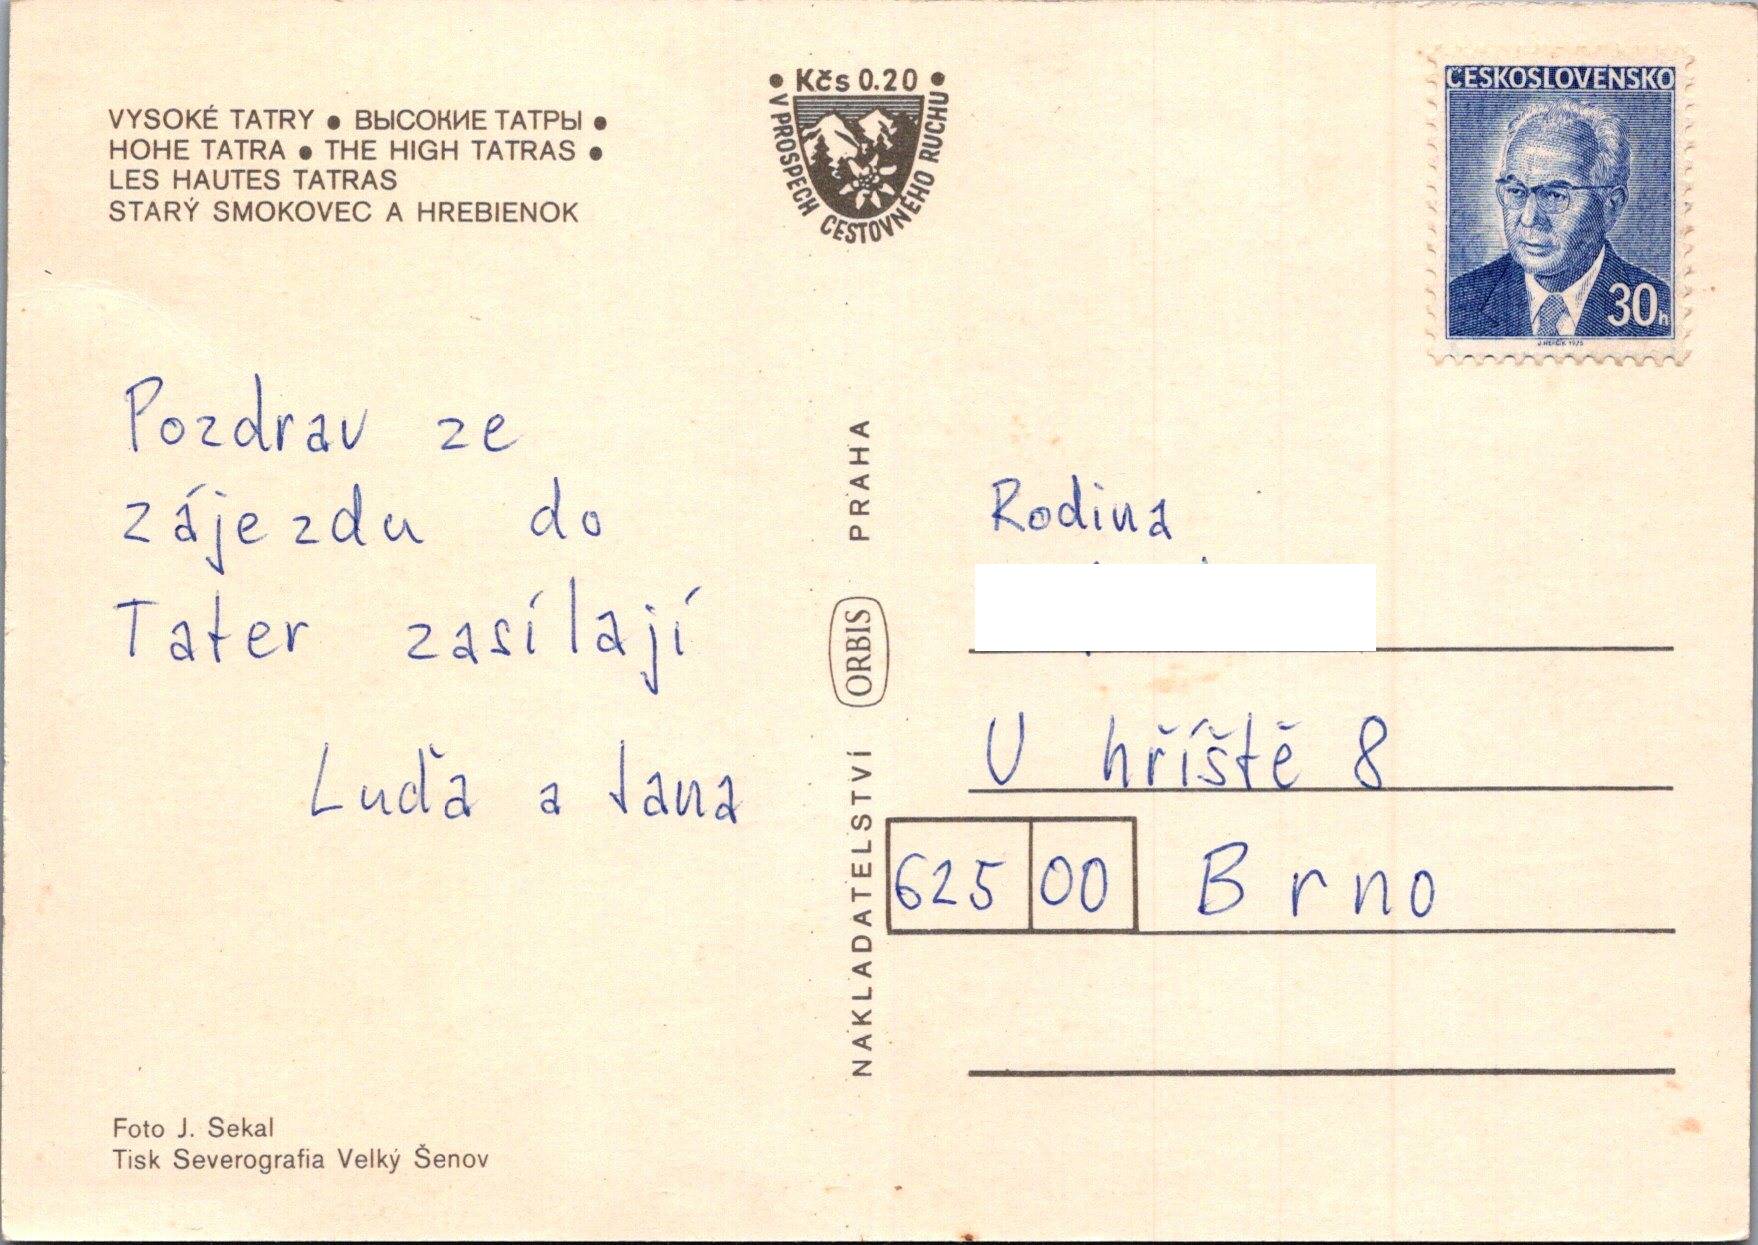 VYSOKÉ TATRY ● ВЫСОКИЕ ТАТРЫ ●
HOHE TATRA ● THE HIGH TATRAS ●
LES HAUTES TATRAS
STARÝ SMOKOVEC A HREBIENOK
• Kčs 0.20 •
V PROSPECH CESTOVNÉHO RUCHU
ČESKOSLOVENSKO
30h
J. HERČÍK 1975
Pozdrav ze
zájezdu do
Tater zasílají
Luďa a Jana
NAKLADATELSTVÍ ORBIS PRAHA
Rodina
U hříště 8
625 00 Brno
Foto J. Sekal
Tisk Severografia Velký Šenov